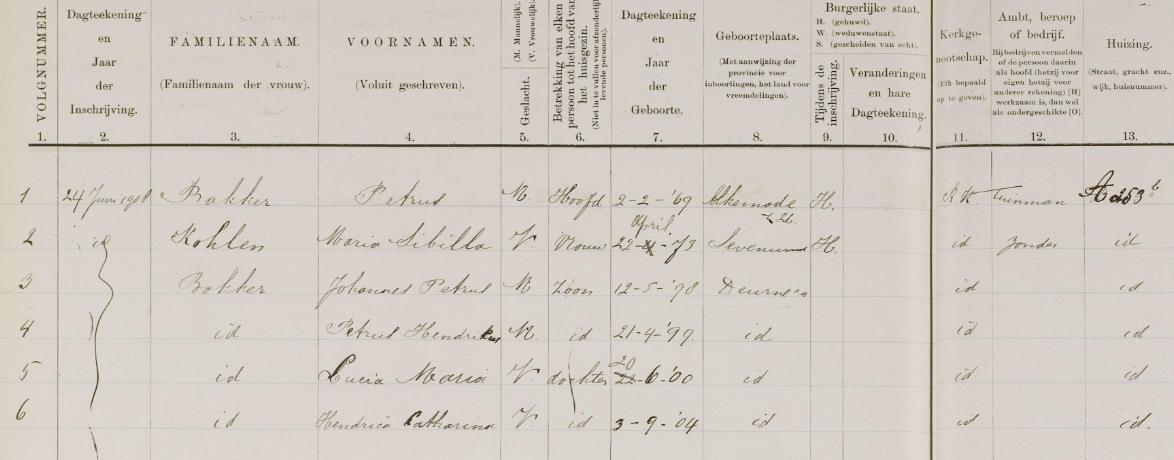 VOLGNUMMER.
1.
Dagteekening
en
Jaar
der
Inschrijving.
2.
FAMILIENAAM.
(Familienaam der vrouw).
3.
VOORNAMEN.
(Voluit geschreven).
4.
Geslacht.
(M. Mannelijk).
(V. Vrouwelijk).
5.
Betrekking van elken
persoon tot het hoofd van
het huisgezin.
(Niet in te vullen voor afzonderlijk
levende personen).
6.
Dagteekening
en
Jaar
der
Geboorte.
7.
Geboorteplaats.
(Met aanwijzing der
provincie voor
inboorlingen, het land voor
vreemdelingen).
8.
Burgerlijke staat.
H. (gehuwd).
W. (weduwenstaat).
S. (gescheiden van echt).
Tijdens de
inschrijving.
9.
Veranderingen
en hare
Dagteekening.
10.
Kerkge-
nootschap.
(Elk bepaald
op te geven).
11.
Ambt, beroep
of bedrijf.
Bij bedrijven vermelden
of de persoon daarin
als hoofd (hetzij voor
eigen hetzij voor
anderer rekening) [H]
werkzaam is, dan wel
als ondergeschikte [O].
12.
Huizing.
(Straat, gracht enz.,
wijk, huisnummer).
13.
1 24 Juni 1908 Bakker Petrus M. Hoofd 2-2-'69 Alkemade H. R K tuinman A 253 b
Z.H.
April
2 id Kohlen Maria Sibilla V. Vrouw 22-4-'73 Sevenum H. id zonder id
3 Bakker Johannes Petrus M Zoon 12-5-'98 Deurne id id
4 id Petrus Hendrikus M. id 21-4-'99. id id id
20
5 id Lucia Maria V. dochter 22-6-'00 id id id
6 id Hendrica Catharina V. id 3-9-'04 id id id.